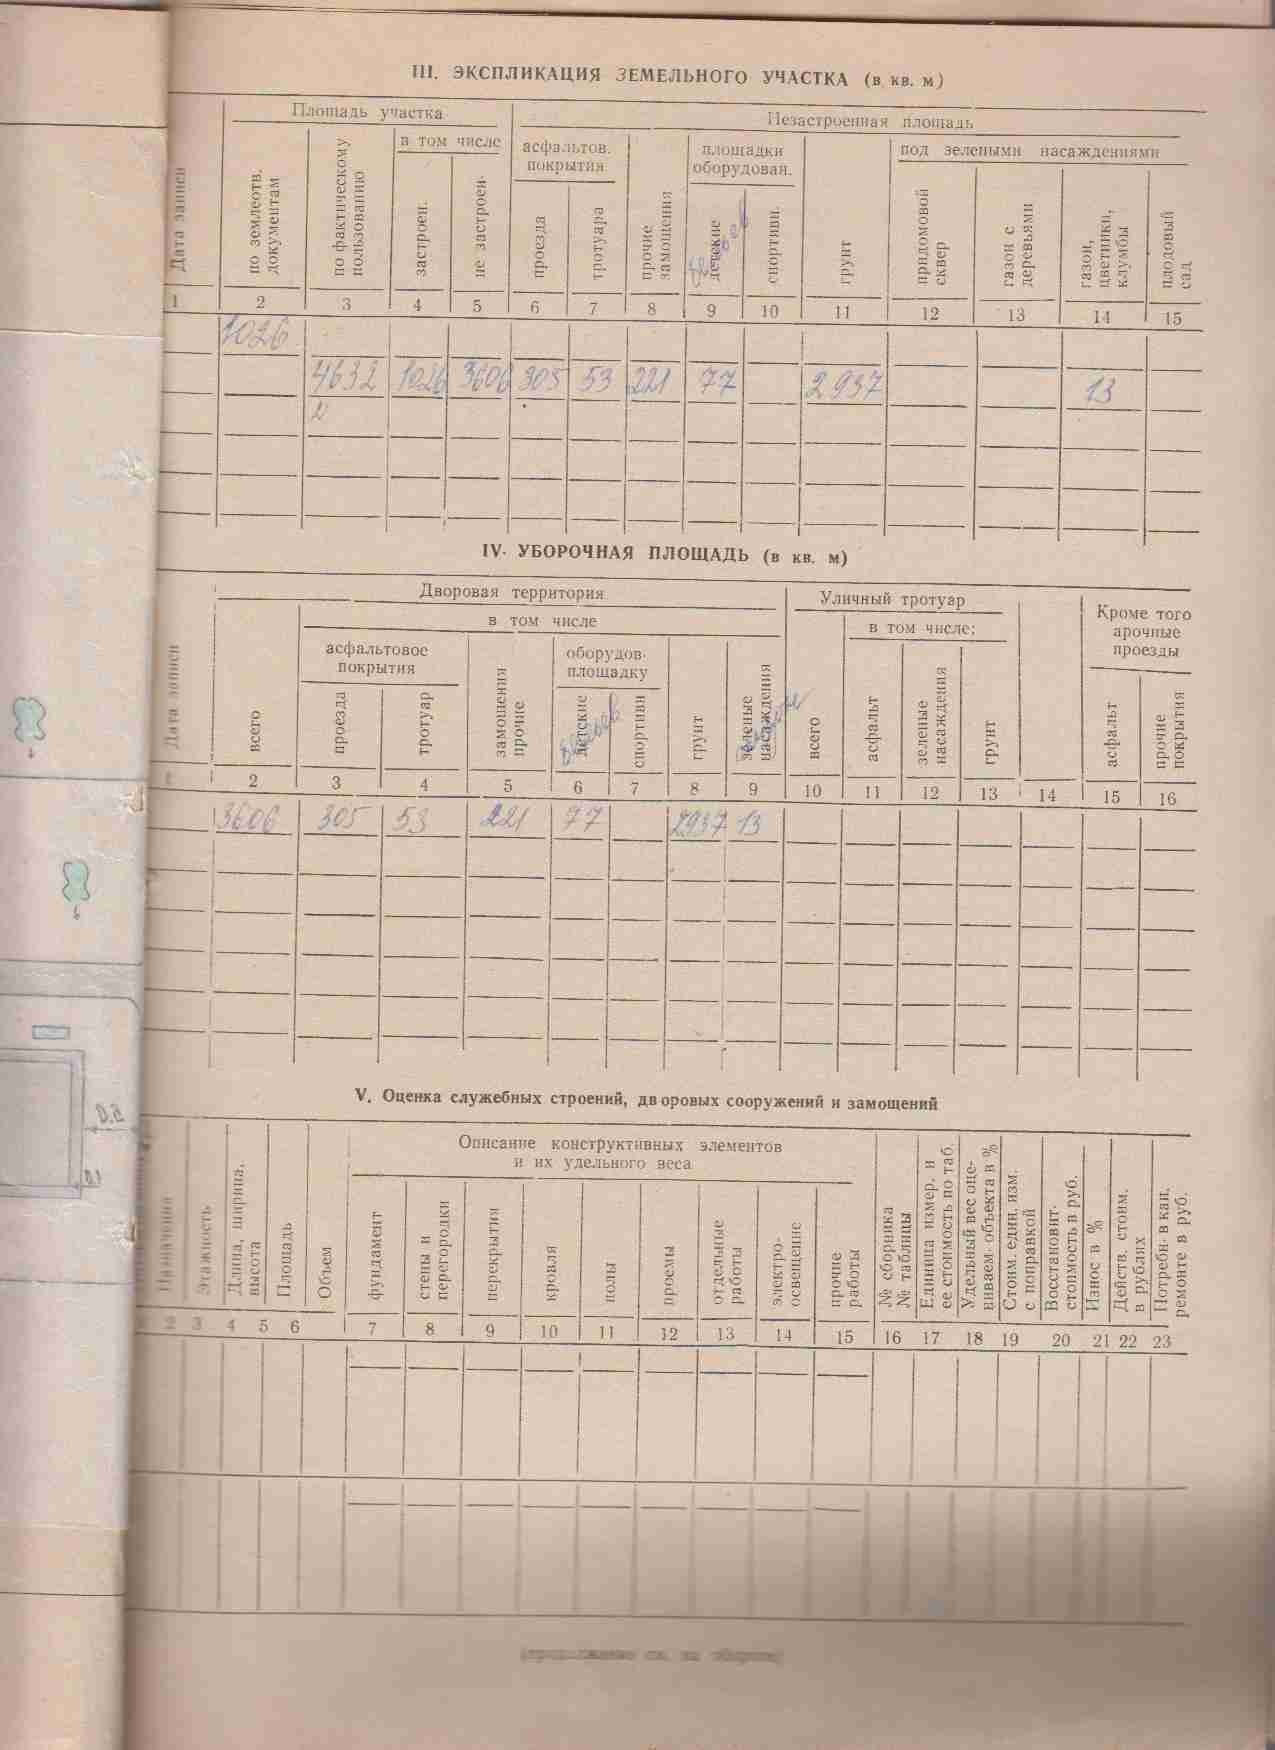 III. ЭКСПЛИКАЦИЯ ЗЕМЕЛЬНОГО УЧАСТКА (в кв. м)
Площадь участка
Незастроенная площадь
в том числе
асфальтов. покрытия
площадки оборудовая.
под зелеными насаждениями
Дата записи
по землеотв. документам
по фактическому пользованию
застроен.
не застроен.
проезда
тротуара
прочие замощения
детские
спортивн.
грунт
придомовой сквер
газон с деревьями
газон, цветники, клумбы
плодовый сад
1 2 3 4 5 6 7 8 9 10 11 12 13 14 15
1026
4632 1026 3606 305 53 221 77 2937 13
IV. УБОРОЧНАЯ ПЛОЩАДЬ (в кв. м)
Дворовая территория
Уличный тротуар
Кроме того арочные проезды
в том числе
в том числе:
асфальтовое покрытия
оборудов. площадку
Дата записи
всего
проезда
тротуар
замощения прочие
детские
спортивн
грунт
зеленые насаждения
всего
асфальт
зеленые насаждения
грунт
асфальт
прочие покрытия
2 3 4 5 6 7 8 9 10 11 12 13 14 15 16
3606 305 53 221 77 2937 13
V. Оценка служебных строений, дворовых сооружений и замощений
Описание конструктивных элементов
и их удельного веса
Назначения
Этажность
Длина, ширина, высота
Площадь
Объем
фундамент
стены и перегородки
перекрытия
кровля
полы
проемы
отдельные работы
электро-освещение
прочие работы
№ сборника № таблицы
Единица измер. и ее стоимость по таб.
Удельный вес оце-ниваем. объекта в %
Стоим. един. изм. с поправкой
Восстановит. стоимость в руб.
Износ в %
Действ. стоим. в рублях
Потребн. в кап. ремонте в руб.
2 3 4 5 6 7 8 9 10 11 12 13 14 15 16 17 18 19 20 21 22 23